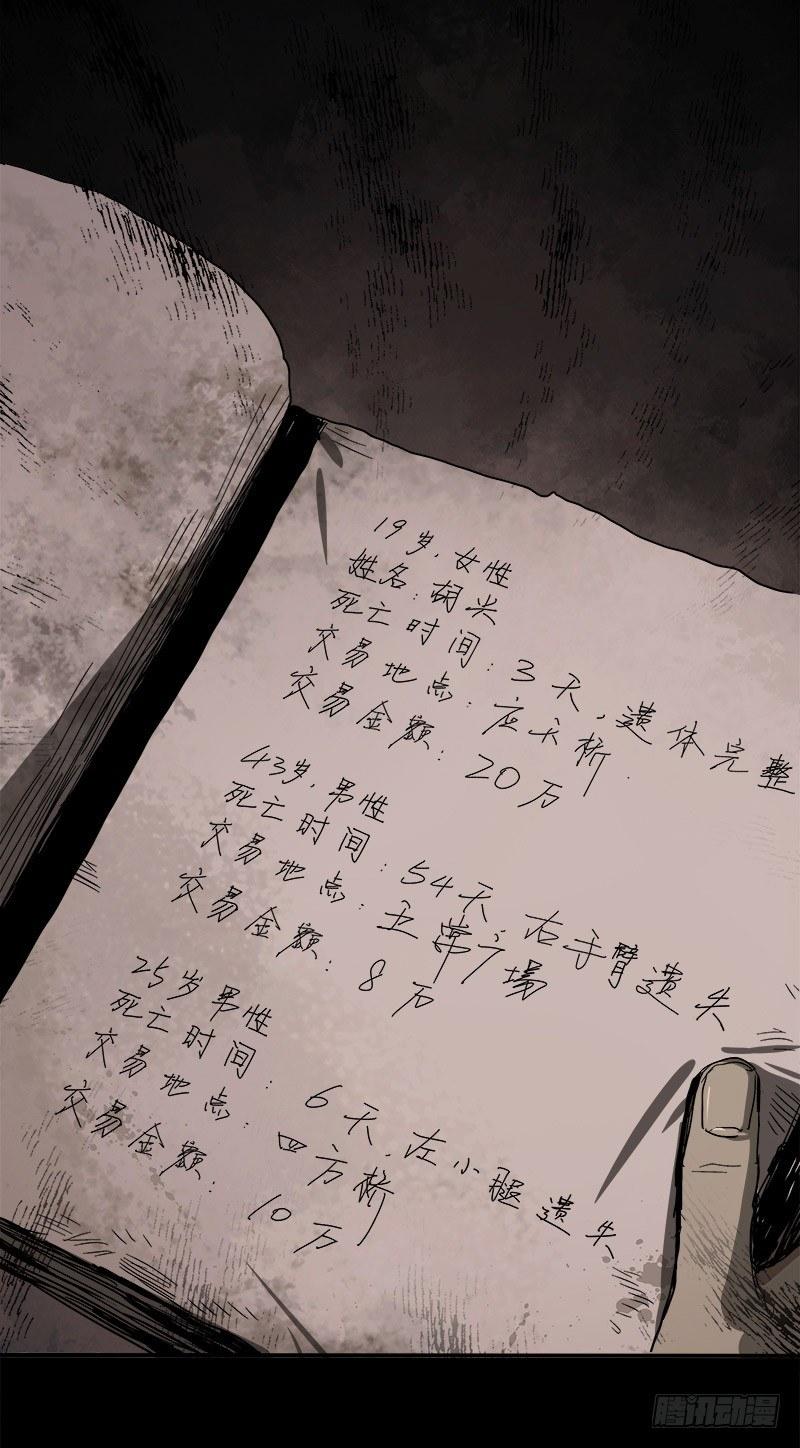 19岁,女性
姓名:胡兴
死亡时间:3天,遗体完整
交易地点:应天桥.
交易金额:20万
43岁,男性
死亡时间:54天,右手臂遗失
交易地点:主常广場
交易金额:8万
25岁男性
死亡时间:6天,左小腿遗失
交易地点:四方桥
交易金额:10万
腾讯动漫